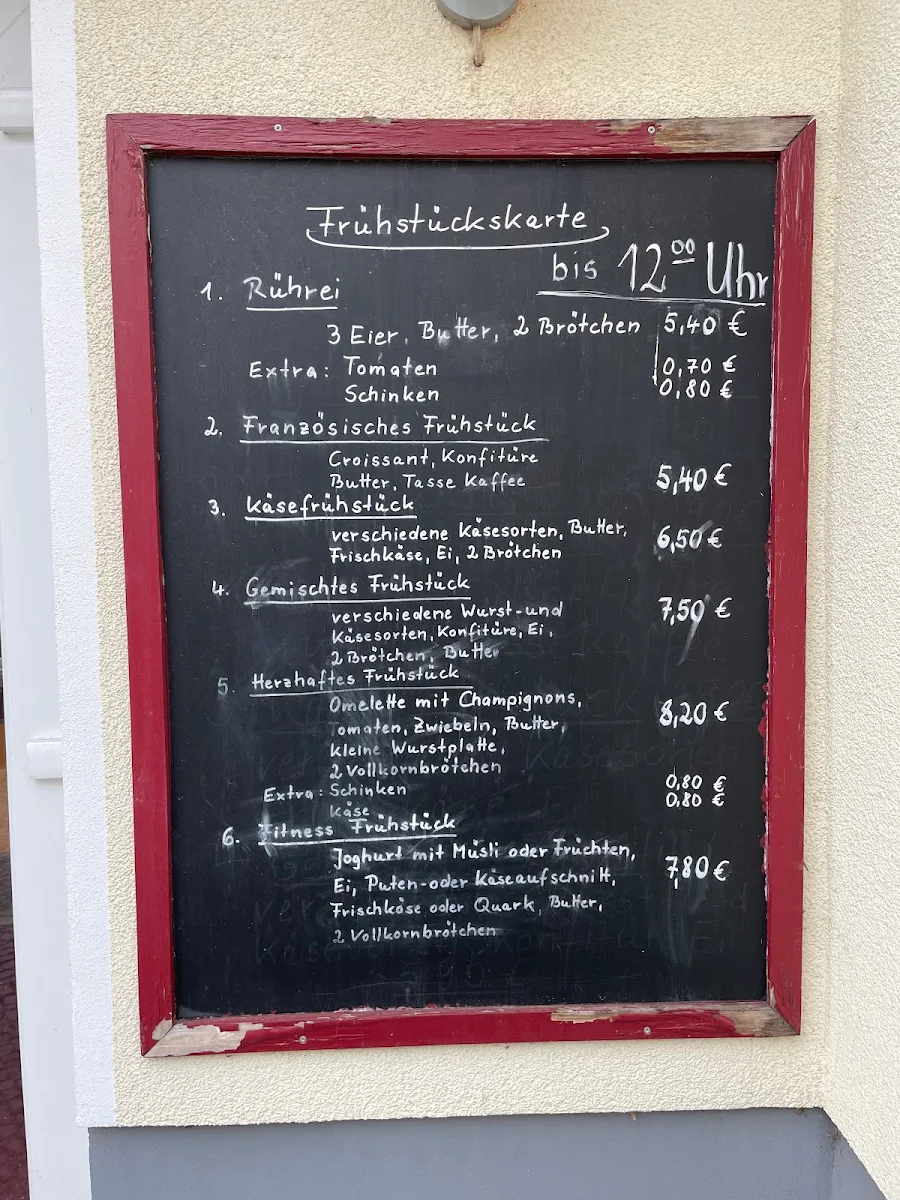 Frühstückskarte
bis 12⁰⁰ Uhr
1. Rührei
3 Eier, Butter, 2 Brötchen 5,40 €
Extra: Tomaten 0,70 €
Schinken 0,80 €
2. Französisches Frühstück
Croissant, Konfitüre
Butter, Tasse Kaffee 5,40 €
3. Käsefrühstück
verschiedene Käsesorten, Butter,
Frischkäse, Ei, 2 Brötchen 6,50 €
4. Gemischtes Frühstück
verschiedene Wurst- und 7,50 €
Käsesorten, Konfitüre, Ei,
2 Brötchen, Butter
5. Herzhaftes Frühstück
Omelette mit Champignons,
Tomaten, Zwiebeln, Butter, 8,20 €
kleine Wurstplatte,
2 Vollkornbrötchen
Extra: Schinken 0,80 €
Käse 0,80 €
6. Fitness Frühstück
Joghurt mit Müsli oder Früchten,
Ei, Puten- oder Käseaufschnitt, 7,80 €
Frischkäse oder Quark, Butter,
2 Vollkornbrötchen